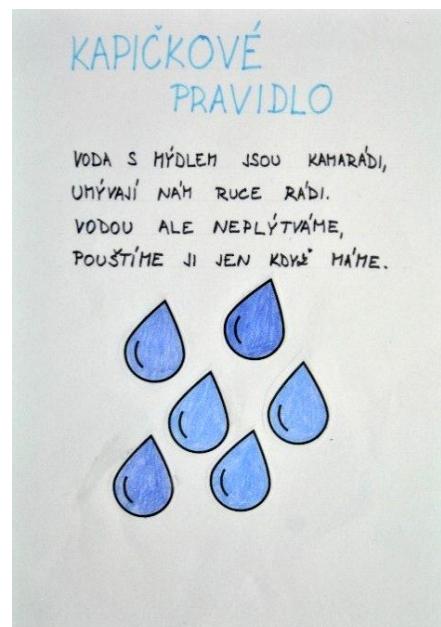 KAPIČKOVÉ
PRAVIDLO
VODA S MÝDLEM JSOU KAMARÁDI,
UMÝVAJÍ NÁM RUCE RÁDI.
VODOU ALE NEPLÝTVÁME,
POUŠTÍME JI JEN KDYŽ MÁME.